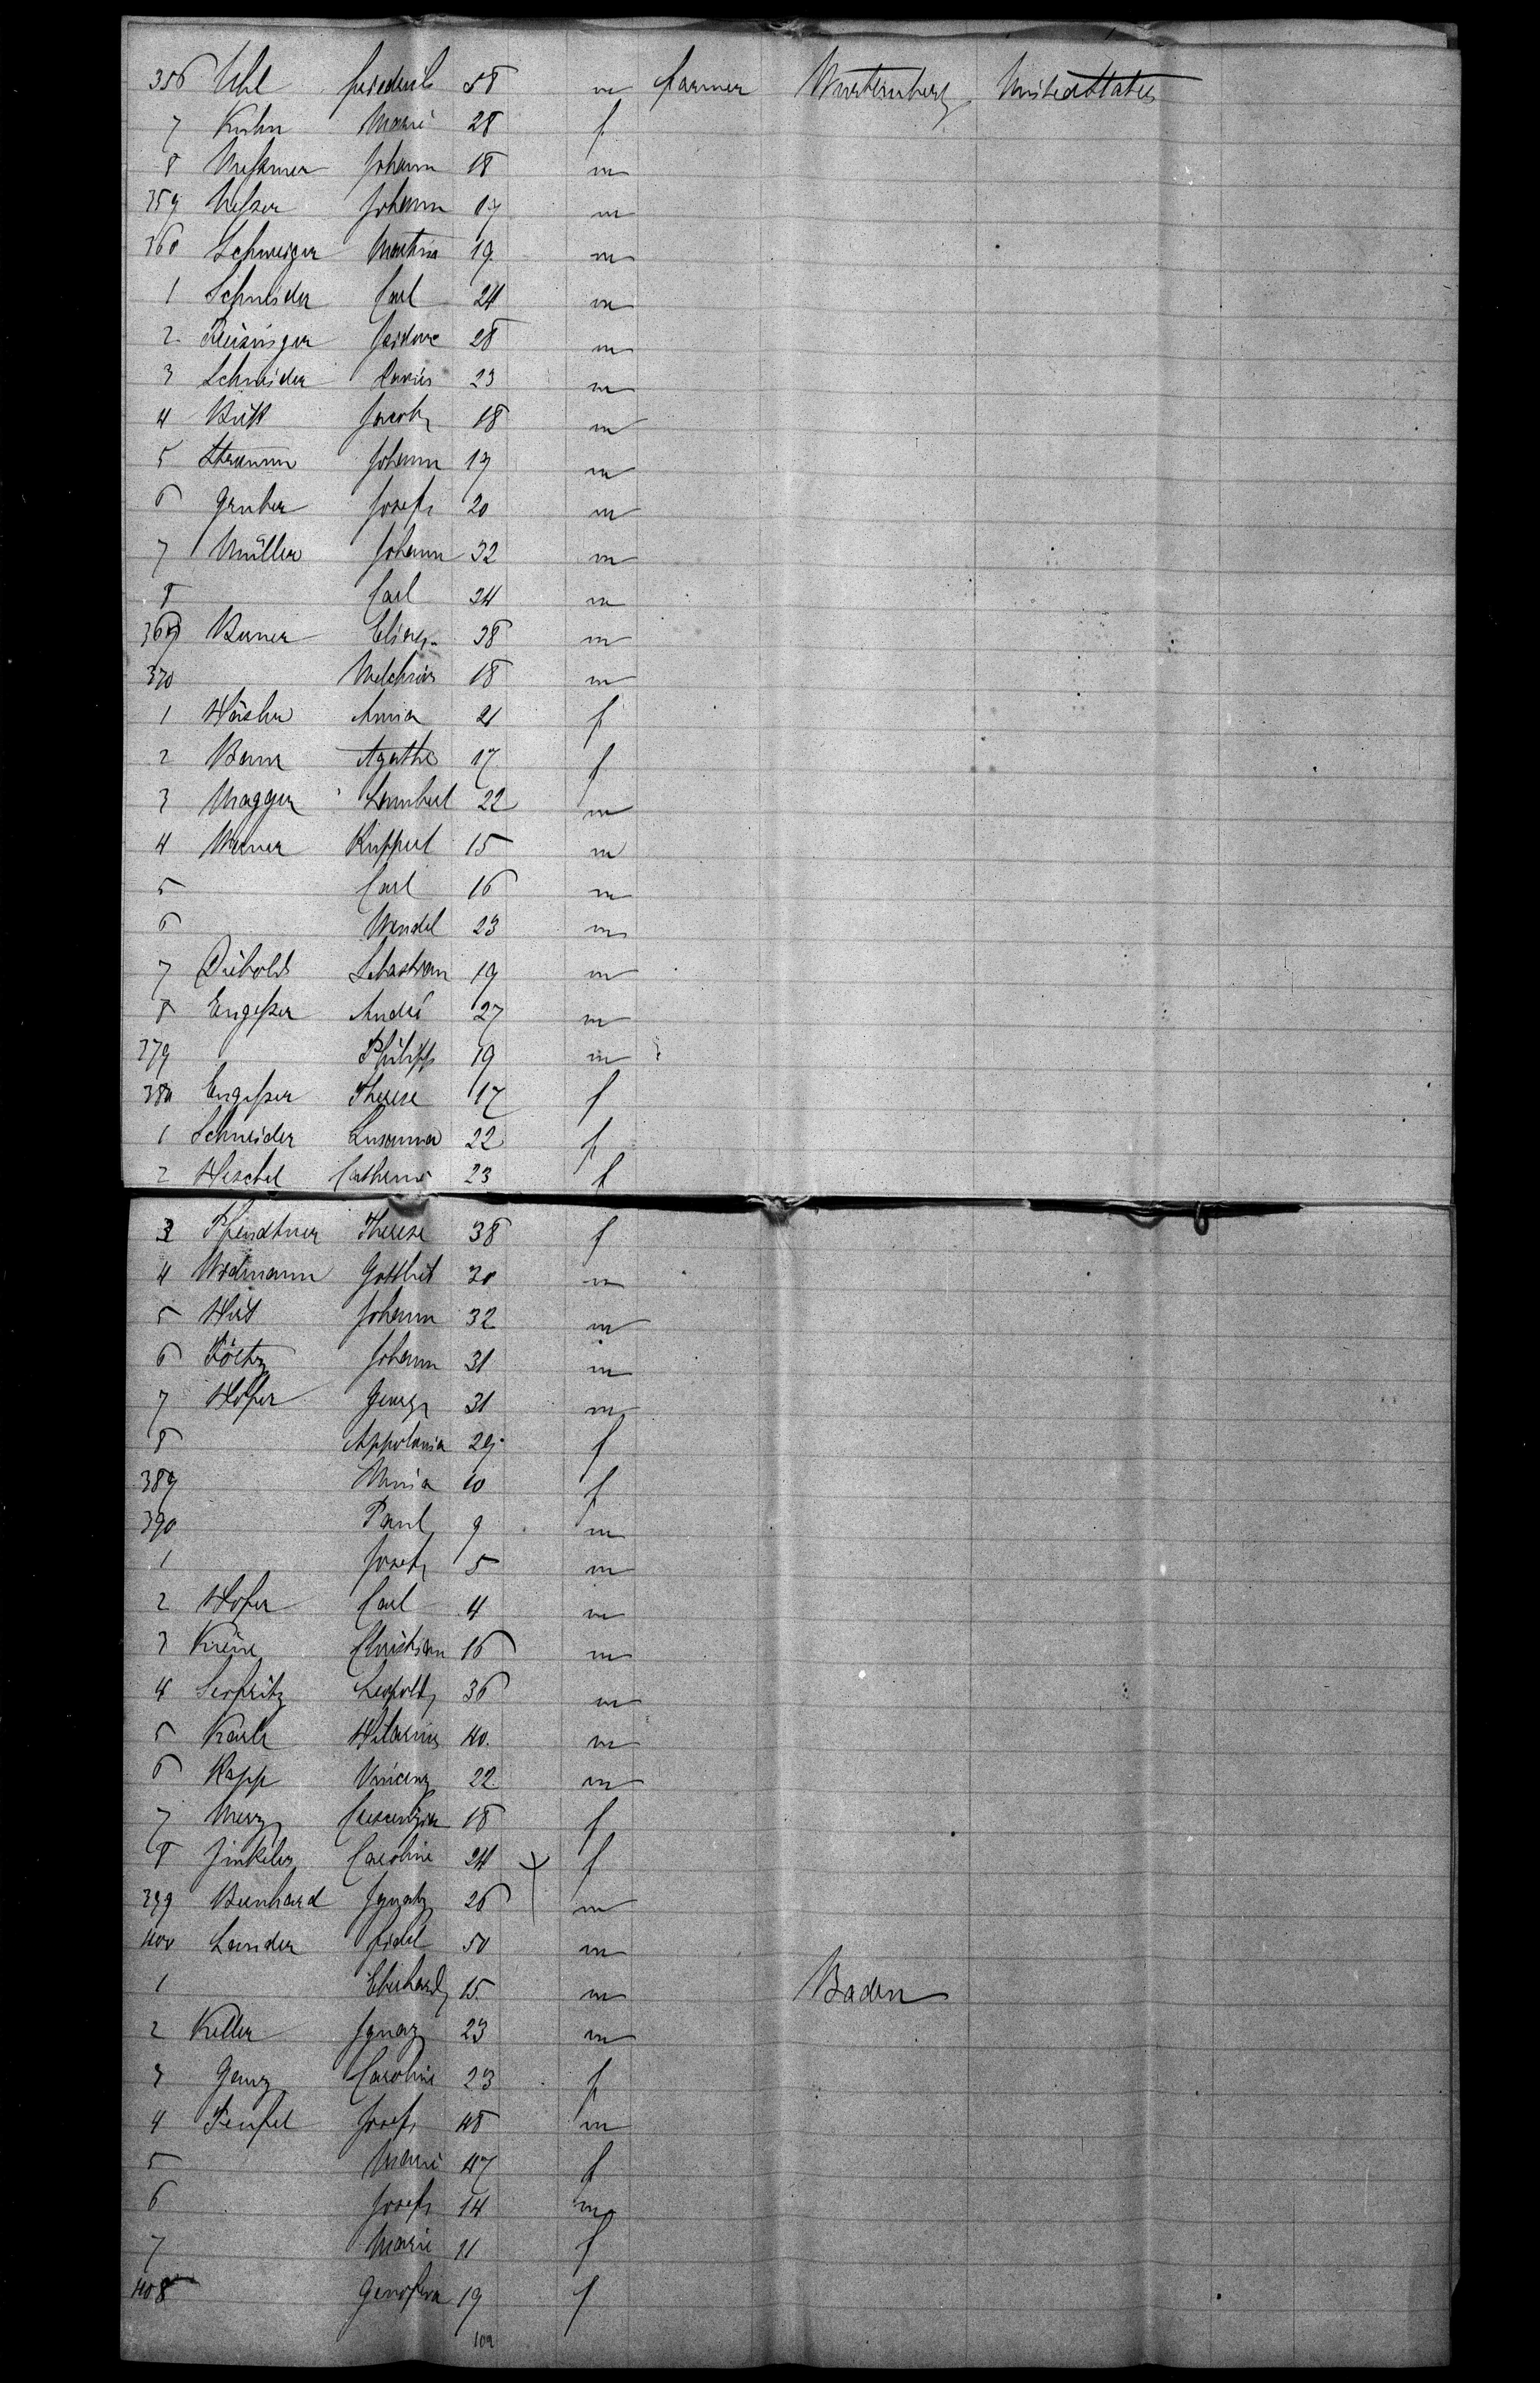 356 Uhl Friederich 58 m farmer Wurtemberg United States
7 Kuhn Marie 28 f
8 Messmer Johann 18 m
359 Messer Johann 17 m
360 Schweizer Martin 19 m
1 Schneider Carl 24 m
2 Reisinger Isidore 28 m
3 Schneider Xavier 23 m
4 Butt Jacob 18 m
5 Straumm Johann 19 m
6 Gruber Josef 20 m
7 Müller Johann 32 m
8 Carl 24 m
369 Elias 38 m
370 Melchior 18 m
1 Anna 21 f
2 Agathe 17 f
3 Magger Lambert 22 m
4 Werner Ruppert 15 m
5 Carl 16 m
6 Wendel 23 m
7 Diebold Sebastian 19 m
8 Engesser André 27 m
379 Philipp 19 m
380 Engesser Therese 17 f
1 Schneider Susanna 22 f
2 Heschel Catherine 23 f
3 Therese 38 f
4 Widmann Gottlieb 30 m
5 Hirt Johann 32 m
6 Johann 31 m
7 Hofer Georg 31 m
8 Appolonia 29 f
389 Maria 10 f
390 Paul 9 m
1 Josef 5 m
2 Hofer Carl 4 m
3 Christian 16 m
4 Seyfritz Leopold 36 m
5 Karle Hilarius 40 m
6 Rapp Vincenz 22 m
7 Merz Crescenzia 18 f
8 Jinkeler Caroline 24 f
399 Bernhard Ignatz 26 m
400 Lander Fidel 50 m
1 Eberhard 15 m Baden
2 Keller Ignaz 23 m
3 Ganz Caroline 23 f
4 Teufel Josef 48 m
5 Marie 47 f
6 Josef 14 m
7 Marie 11 f
408 Genofeva 19 f